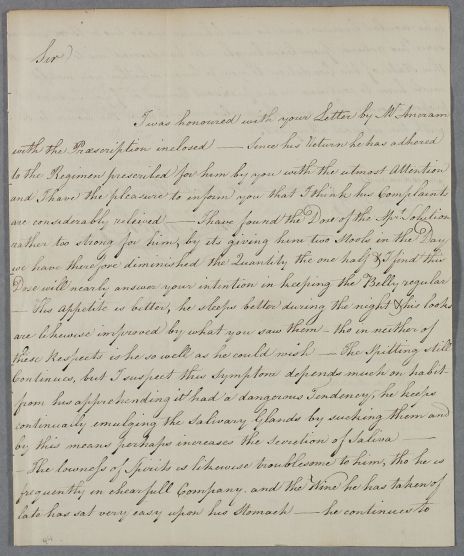 Sir
I was honoured with your Letter by Mr Ancram
with the Præscription inclosed — Since his Return he has adhered
to the Regimen prescribed for him by you with the utmost Attention
and I have the pleasure to inform you that I think his Complaints
are considerably releived — I have found the Dose of the Solution
rather too strong for him, by its giving him two Stools in the Day,
we have therefore diminished the Quantity the one half & I find this
Dose will nearly answer your intention in keeping the Belly regular
— His appetite is better, he sleeps better during the night & his looks
are likewise improved by what you saw them – tho in neither of
these Respects is he so well as he could wish — The Spitting still
Continues, but I suspect this Symptom depends much on habit
from his apprehending it had a dangerous Tendency, he keeps
continually emulging the Salivary Glands by sucking them and
by this means perhaps increases the Secretion of Saliva —
– The lowness of Spirits is likewise troublesome to him, tho he is
frequently in chearfull Company, and the Wine he has taken of
late has sat very easy upon his Stomach — he continues to